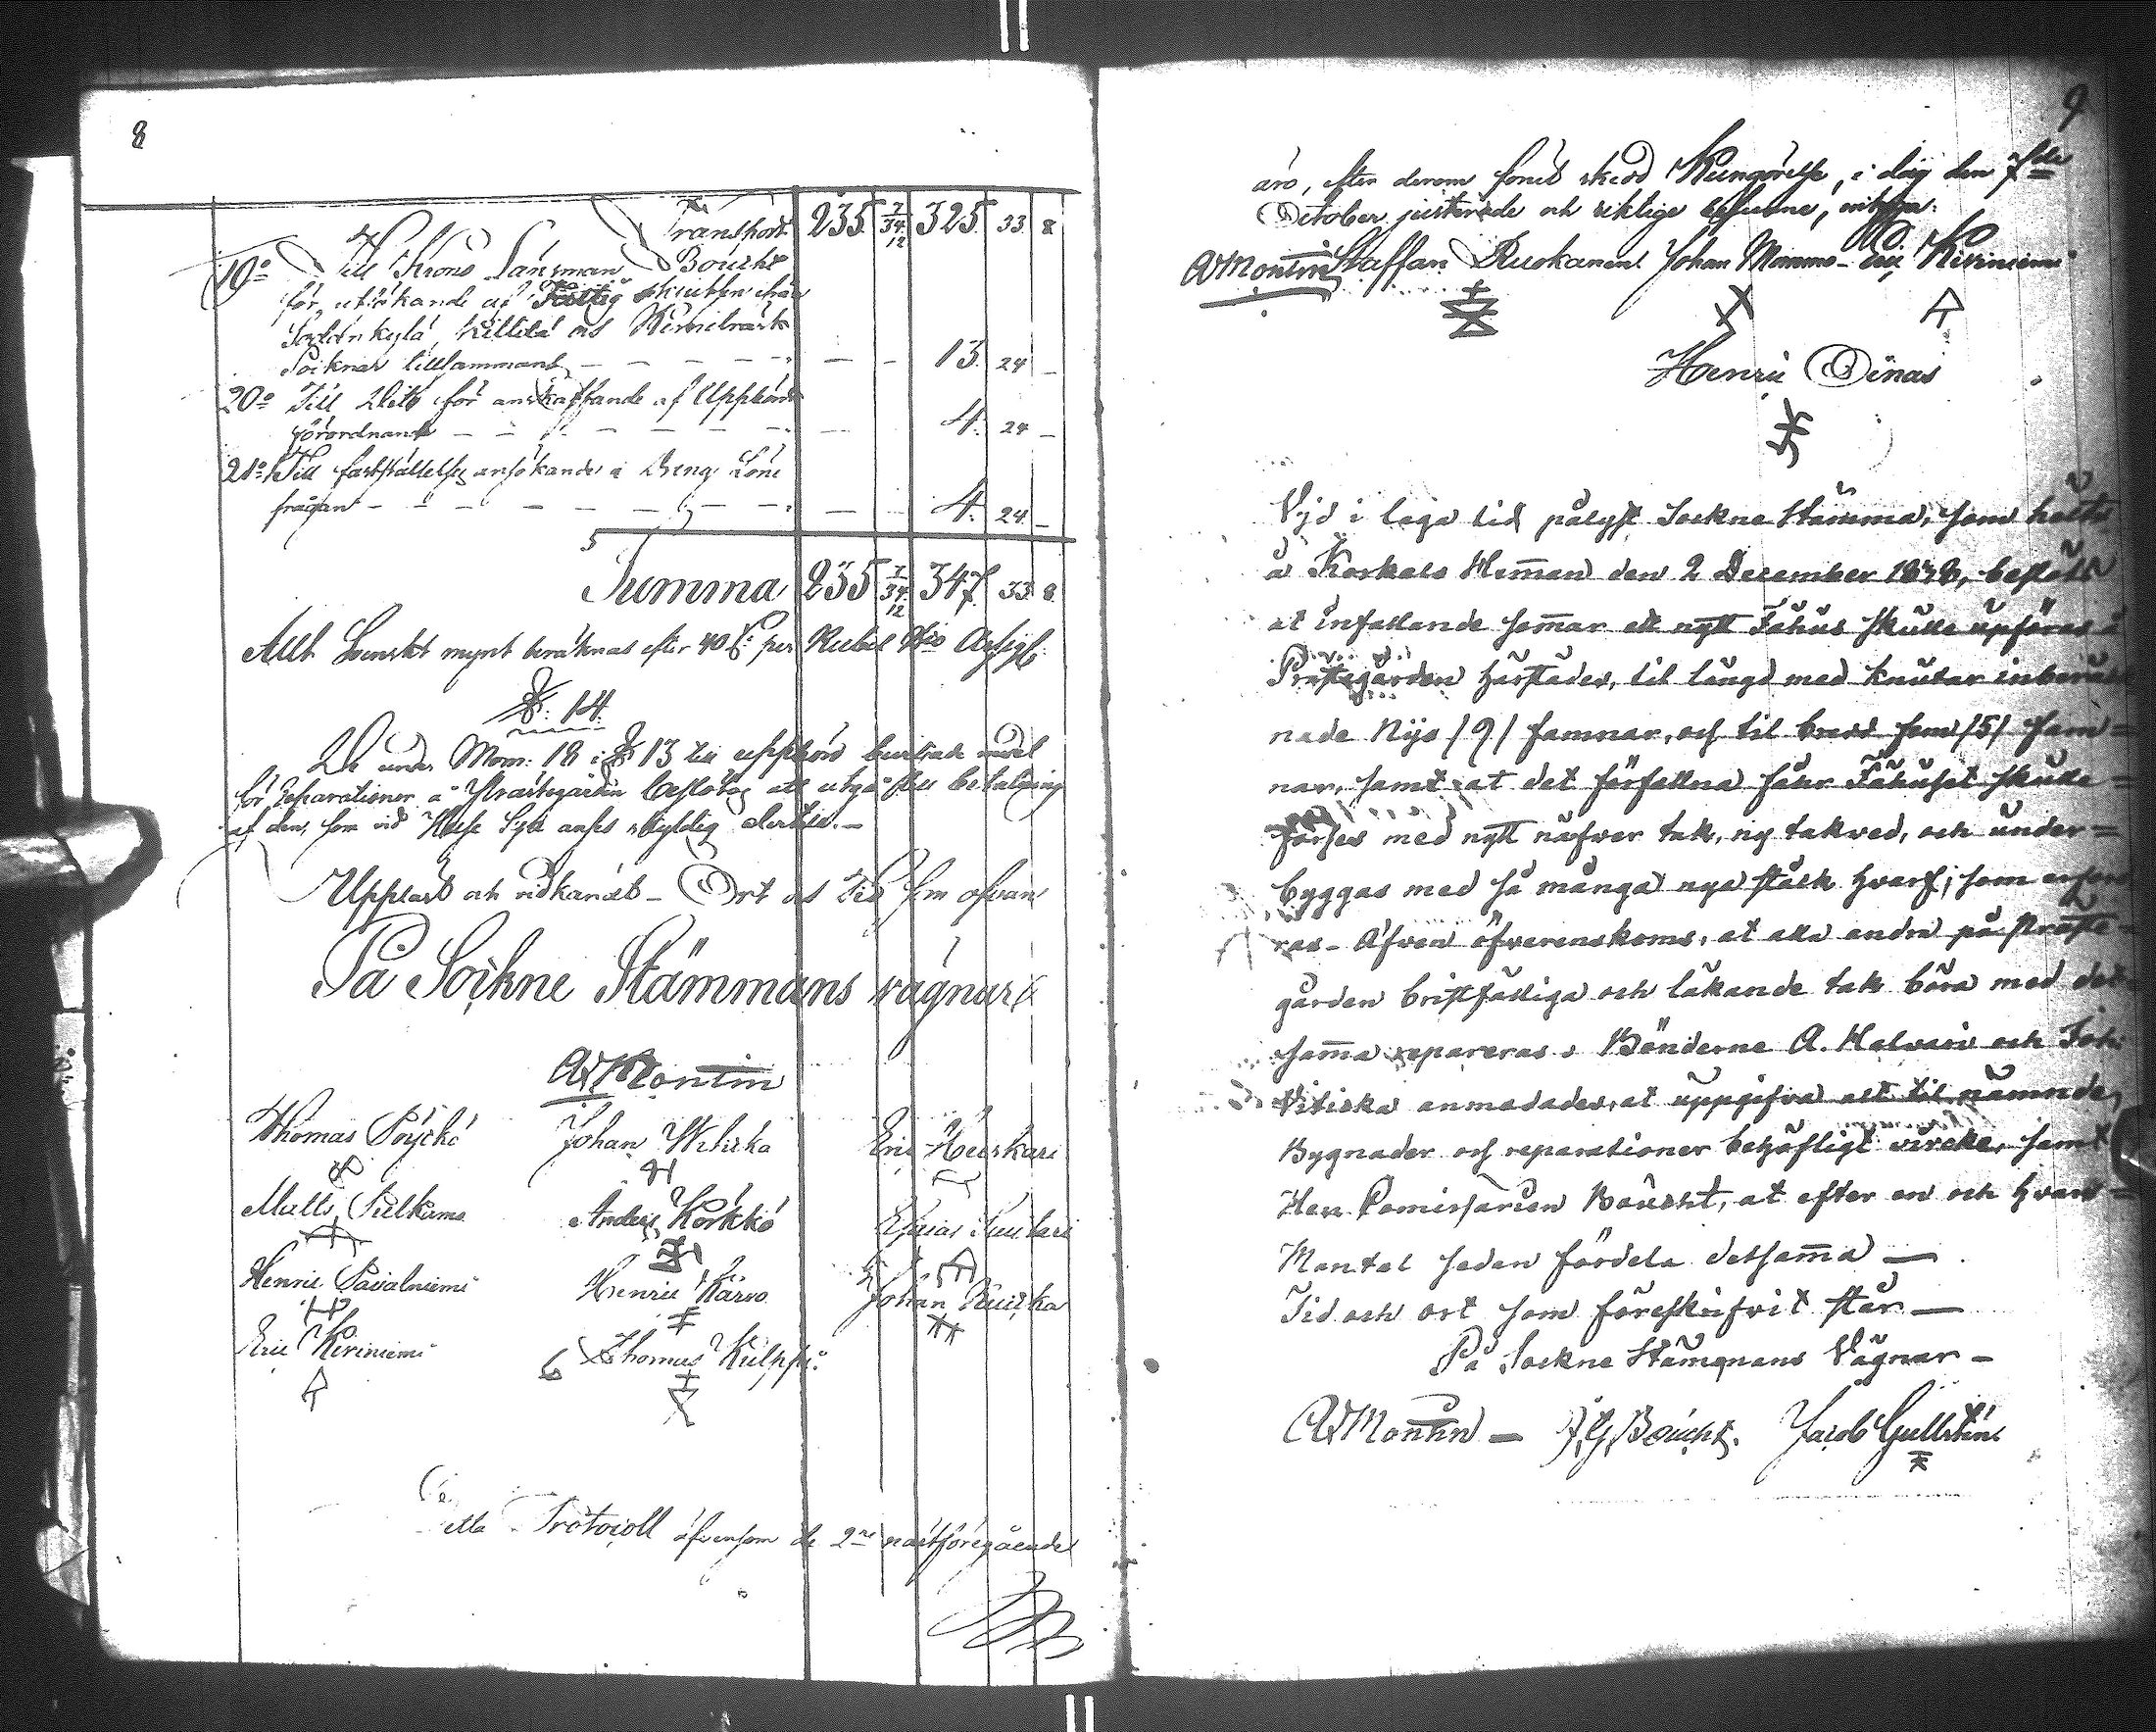 8
Transport 235 7/34.12 325 33. 8
19o Till Krono Länsman Boucht
för utsökande af skiutsen ifrån
Sodankylä, Kittilä och Kemiträsk
Soknar tillsammans — — — — — — — 13. 24 —
20o Till Dito för anskaffande af Uppbörds
förordnande — — — — — — — — 4. 24 —
21o Till fastställelses ansökande i Dreng Löne
frågan — — — — — — — — — 4. 24. —
Summa 235 7/34.12 347. 33. 8.
Allt Svenskt mynt beräknas efter 40 per Rubel Bco Assign:
§: 14.
De under Mom: 18 i § 13 till uppbörd
för Reparationer å Prästegården beslötos att utgå till betalning
af den, som vid Husesyn anses skyldig dertill. —
Uppläst och vidkändt — Ort och Tid som ofvan
På Sockne Stämmans vägnar
A Montin
Thomas Pöyckö Johan Vitiska Eric Heiskari
Matts Pulkamo Anders Korkko Esaias Suutari
Henric Pavalniemi Henric Karvo Johan Ruikka
Eric Kiviniemi Thomas Kulppi
Detta Protocoll äfvensom de 2ne nästföregående
9
äro, efter derom förut skedd Kungörelse, i dag den 7de
October justerade och riktige befundne,
A Montin Staffan Ruokanen Johan Mommo Eric Kiviniemi
Henric Oinas
Vid i laga tid pålyst Sockne Stämma, som hölts
å Korkalo Hem̅an den 2 December 1838, beslöts
at infallande som̅ar ett nytt Fähus skulle upföras å
Prästegården härstädes, til längd med knutar inberäk
nade Nijo /9/ famnar, och til bredd fem /5/ fam=
nar, samt at det förfallna Fähuset skulle
förses med nytt näfver tak, ny takved, och under=
byggas med så många nya stock hvarf, som erford
ras — Äfven öfverenskoms, at alla andra på Präste-
gården bristfälliga och läkande tak böra med det
sam̅a repareras. Bönderne A. Halvari och Joh.
Vitiska anmodades, at uppgifva alt til nämnde
Bygnader och reparationer behöfligt vircke, samt
Herr Comissarien Boucht, at efter en och hvars
Mantal sedan fördela detsam̅a —
Tid och ort som föreskrifvit står —
På Sockne Stämmans Vägnar —
A Montin — J, G, Boucht. Jacob Gullstén